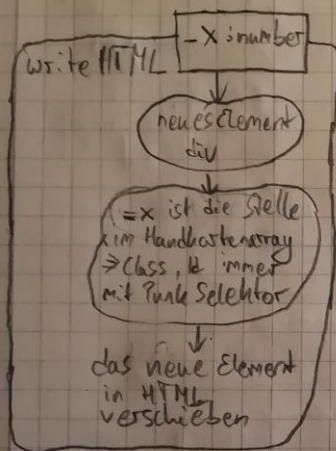 -X:number
writeHTML
neuesElement
div
=x ist die Stelle
x im Handkartenarray
⇒ Class, Id immer
mit Punk Selektor
das neue Element
in HTML
verschieben